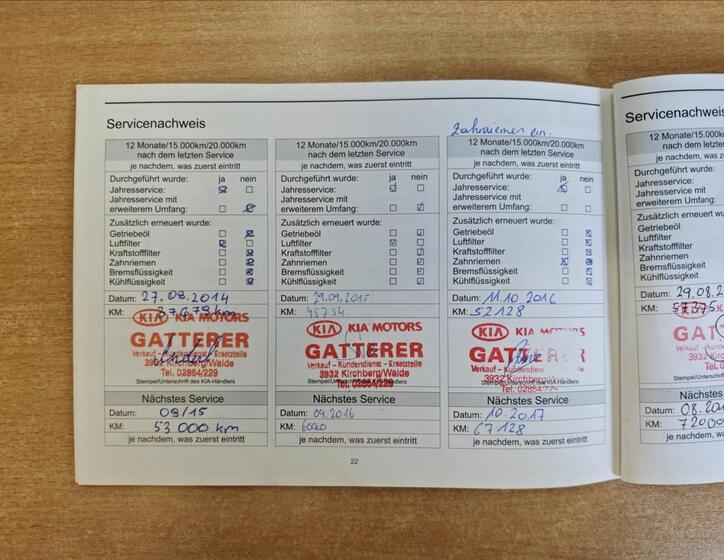 Servicenachweis
Zahnriemen ein.
12 Monate/15.000km/20.000km
nach dem letzten Service
je nachdem, was zuerst eintritt
Durchgeführt wurde: ja nein
Jahresservice:
Jahresservice mit
erweiterem Umfang:
Zusätzlich erneuert wurde:
Getriebeöl
Luftfilter
Kraftstofffilter
Zahnriemen
Bremsflüssigkeit
Kühlflüssigkeit
Datum: 27.08.2014
KM: 37679 km
KIA KIA MOTORS
GATTERER
Verkauf - Kundendienst - Ersatzteile
3932 Kirchberg/Walde
Tel. 02854/229
Stempel/Unterschrift des KIA-Händlers
Nächstes Service
Datum: 09/15
KM: 53 000 km
je nachdem, was zuerst eintritt
12 Monate/15.000km/20.000km
nach dem letzten Service
je nachdem, was zuerst eintritt
Durchgeführt wurde: ja nein
Jahresservice:
Jahresservice mit
erweiterem Umfang:
Zusätzlich erneuert wurde:
Getriebeöl
Luftfilter
Kraftstofffilter
Zahnriemen
Bremsflüssigkeit
Kühlflüssigkeit
Datum: 29.09.2015
KM: 45754
KIA KIA MOTORS
GATTERER
Verkauf - Kundendienst - Ersatzteile
3932 Kirchberg/Walde
Tel. 02854/229
Stempel/Unterschrift des KIA-Händlers
Nächstes Service
Datum: 09.2016
KM:
je nachdem, was zuerst eintritt
12 Monate/15.000km/20.000km
nach dem letzten Service
je nachdem, was zuerst eintritt
Durchgeführt wurde: ja nein
Jahresservice:
Jahresservice mit
erweiterem Umfang:
Zusätzlich erneuert wurde:
Getriebeöl
Luftfilter
Kraftstofffilter
Zahnriemen
Bremsflüssigkeit
Kühlflüssigkeit
Datum: 11.10.2016
KM: 52128
KIA KIA
GATT R
Verkauf - Kundendien
3932 Kirchberg
Tel. 02854/22
Stempel/Unterschrift des KIA-Händlers
Nächstes Service
Datum: 10.2017
KM: 67128
je nachdem, was zuerst eintritt
22
Servicenachweis
12 Monate/15.0
nach dem
je nachdem, w
Durchgeführt w
Jahresservice:
Jahresservice
erweiterem Um
Zusätzlich erne
Getriebeöl
Luftfilter
Kraftstofffilter
Zahnriemen
Bremsflüssigke
Kühlflüssigkeit
Datum: 29.08.2
KM: 57375
GA
Nächst
Datum: 08.20
KM: 72000
je nachdem, w